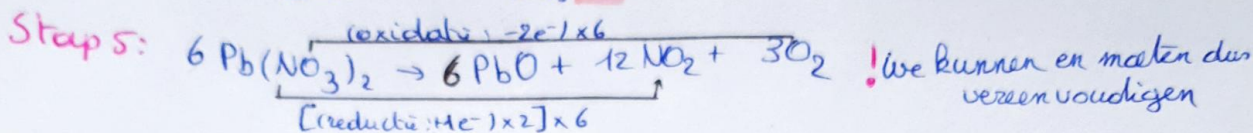 Stap 5:
(oxidatie: -2e⁻) x6
6 Pb(NO₃)₂ → 6 PbO + 12 NO₂ + 3O₂ ! we kunnen en moeten dus
vereenvoudigen
[(reductie: +1e⁻) x2] x6